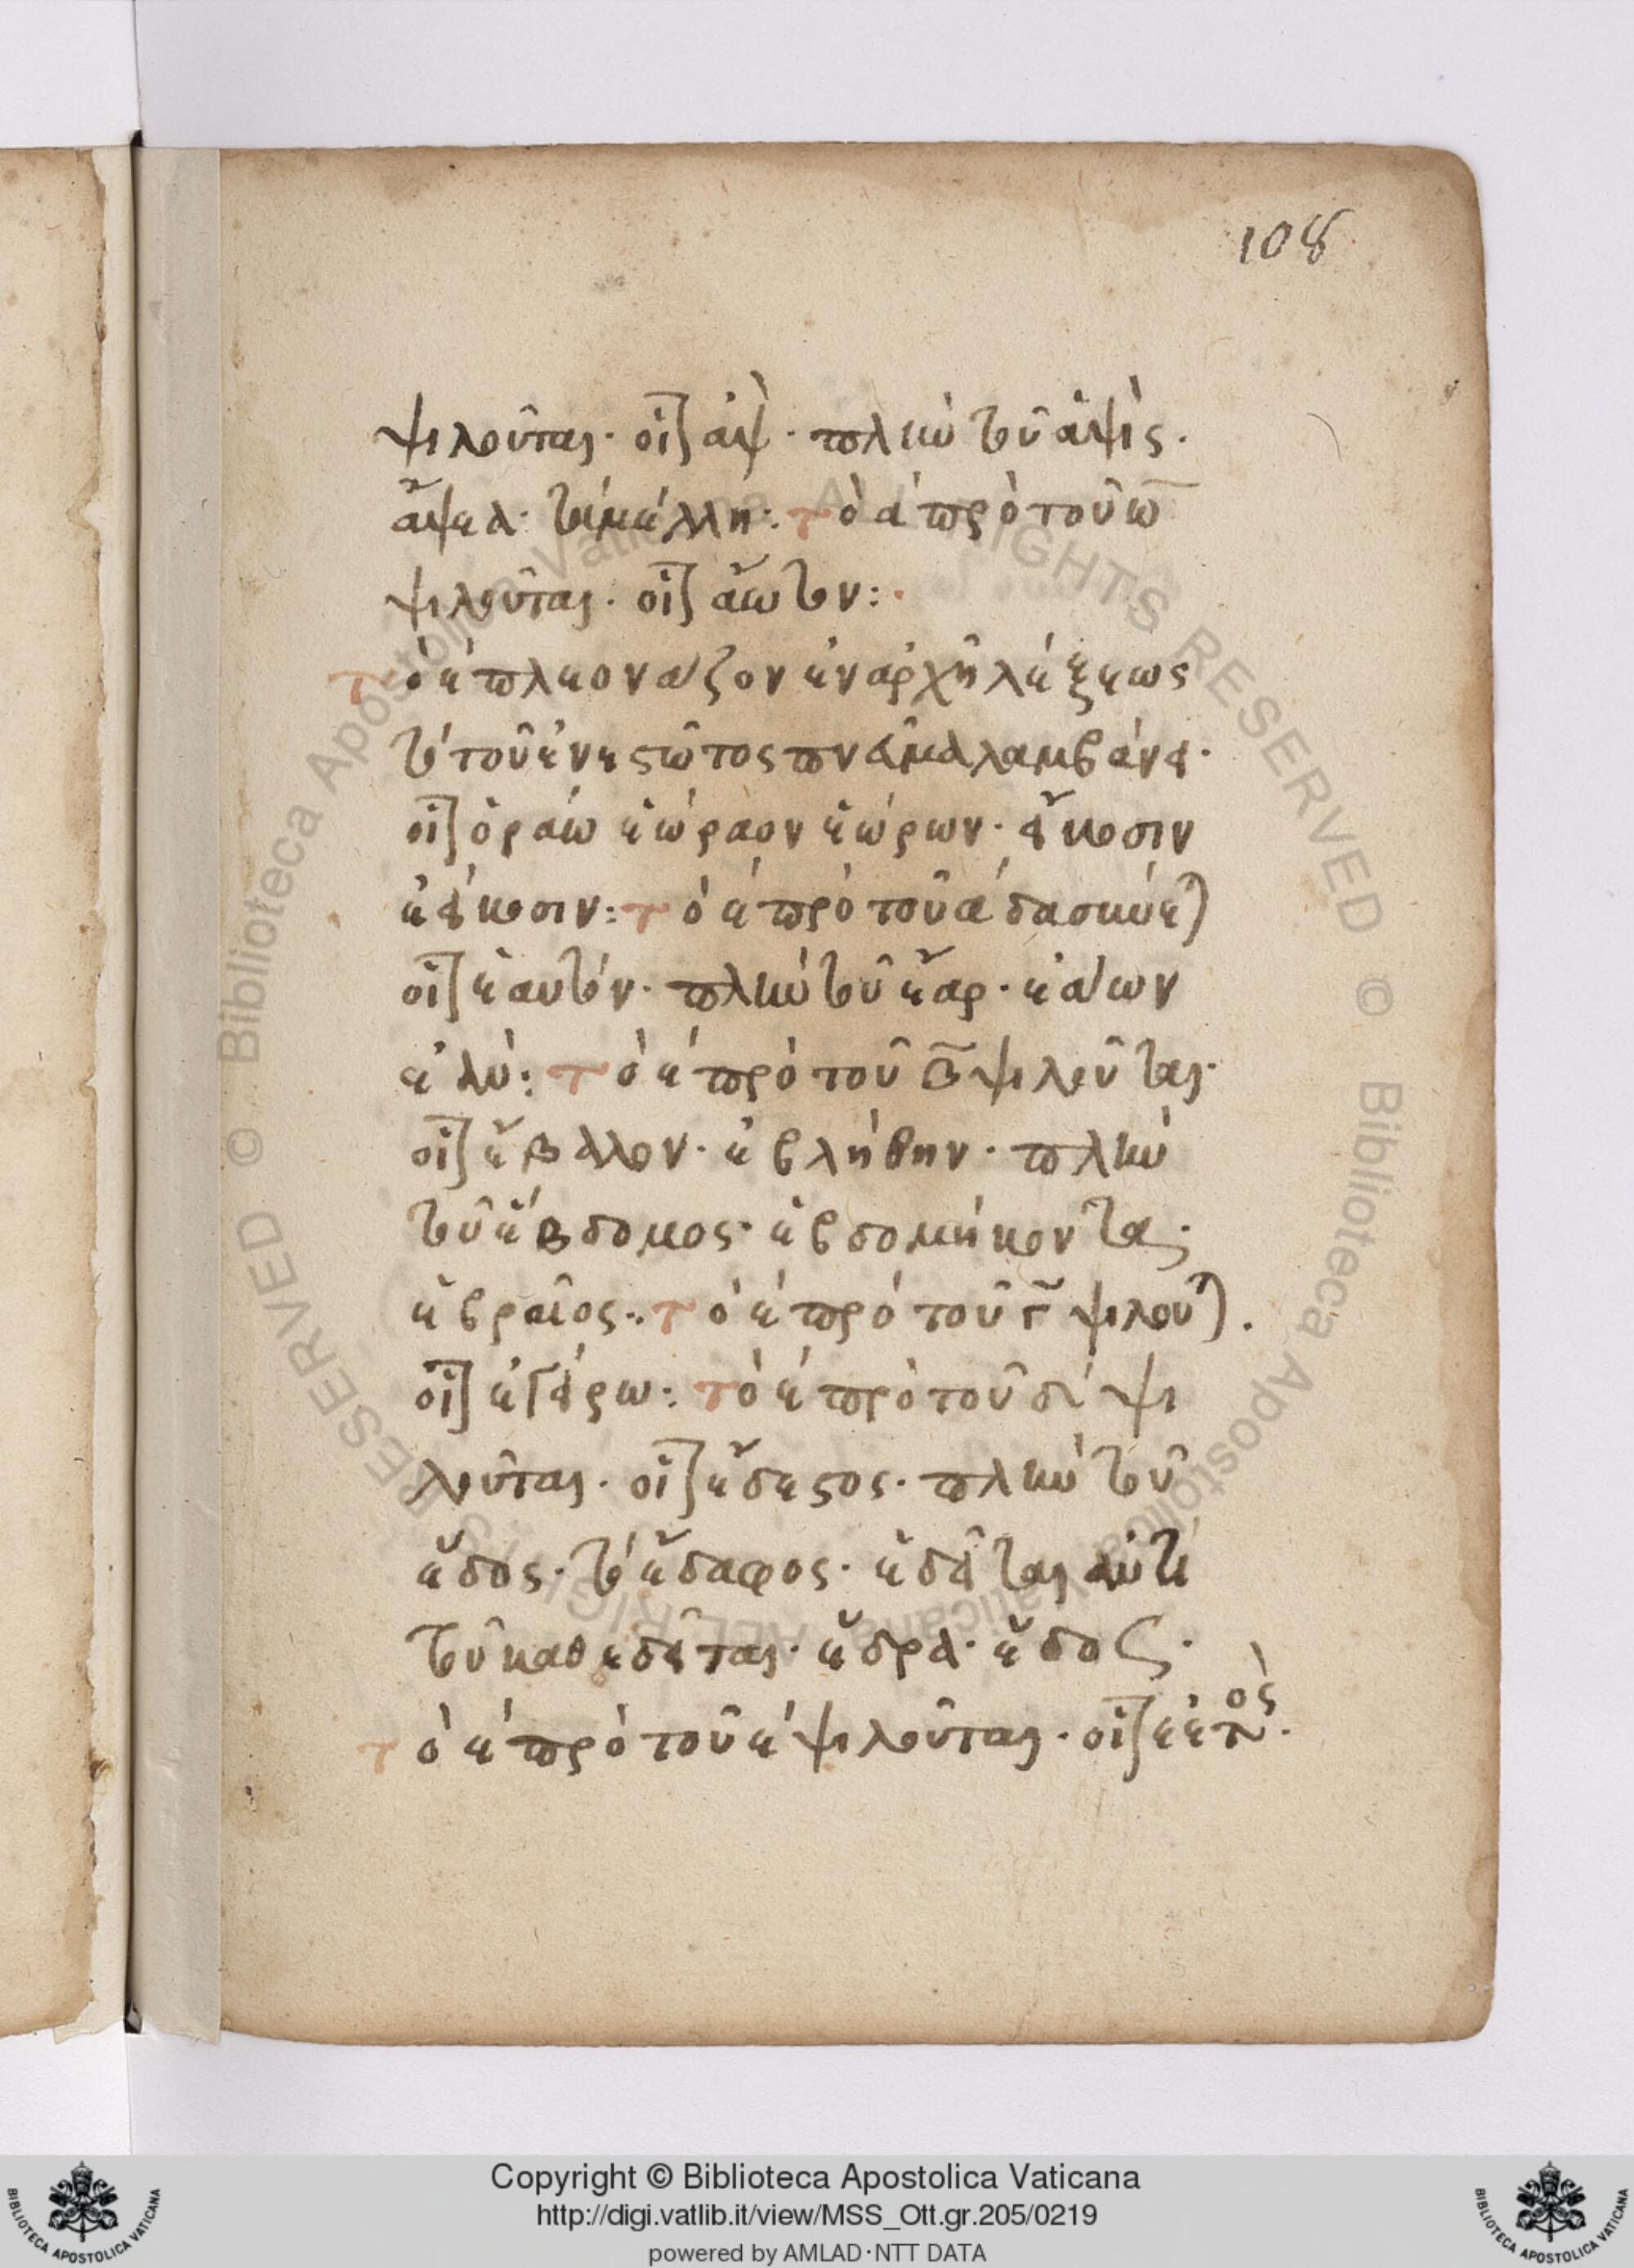 108
ψιλοῦται· οἷ αψ· πλὴν τοῦ ἁψὶς.
ἅψεα· τὰ μέλη: τὸ α πρὸ τοῦ ω
ψιλοῦται· οἷ ἄωτον:
τὸ ε πλεονάζον ἐν ἀρχῆ λέξεως
τὸ τοῦ ἐνεστῶτος πνεῦμα λαμβάνει·
οἷ ὁράω ἑώραον ἑώρων· εἴκοσιν
ἐείκοσιν: τὸ ε πρὸ τοῦ α δασύνε)
οἷ ἑαυτόν· πλὴν τοῦ ἔαρ· ἐάων
ἐὰν: τὸ ε πρὸ τοῦ β ψιλοῦται·
οἷ ἔβαλλον· ἐβλήθην· πλὴν
τοῦ ἕβδομος· ἑβδομήκοντα·
ἑβραῖος: τὸ ε πρὸ τοῦ γ ψιλοῦ).
οἷ ἐγείρω: τὸ ε πρὸ τοῦ δ ψι
λοῦται· οἷ ἔδεστος· πλὴν τοῦ
ἕδος· τὸ ἔδαφος· ἑδεῖται ἀντὶ
τοῦ καθεδεῖται· ἕδρα· ἕδος·
τὸ ε πρὸ τοῦ ε ψιλοῦται· οἷ
Copyright © Biblioteca Apostolica Vaticana
http://digi.vatlib.it/view/MSS_Ott.gr.205/0219
powered by AMLAD·NTT DATA
© Biblioteca Apostolica Vaticana ALL RIGHTS RESERVED © Biblioteca Apostolica Vaticana ALL RIGHTS RESERVED
BIBLIOTECA APOSTOLICA VATICANA
BIBLIOTECA APOSTOLICA VATICANA